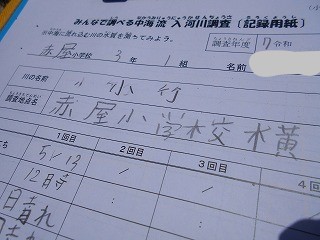 みんなで調べる中海流入河川調査 [記録用紙]
中海に流れ込む川の水質を測ってみよう。
調査年度 令和7
赤屋小学校 3年 1組 名前
川の名前 小竹
調査地点名 赤屋小学校水黄
1回目 2回目 3回目 4回
5/13 / /
12日寺
日青れ